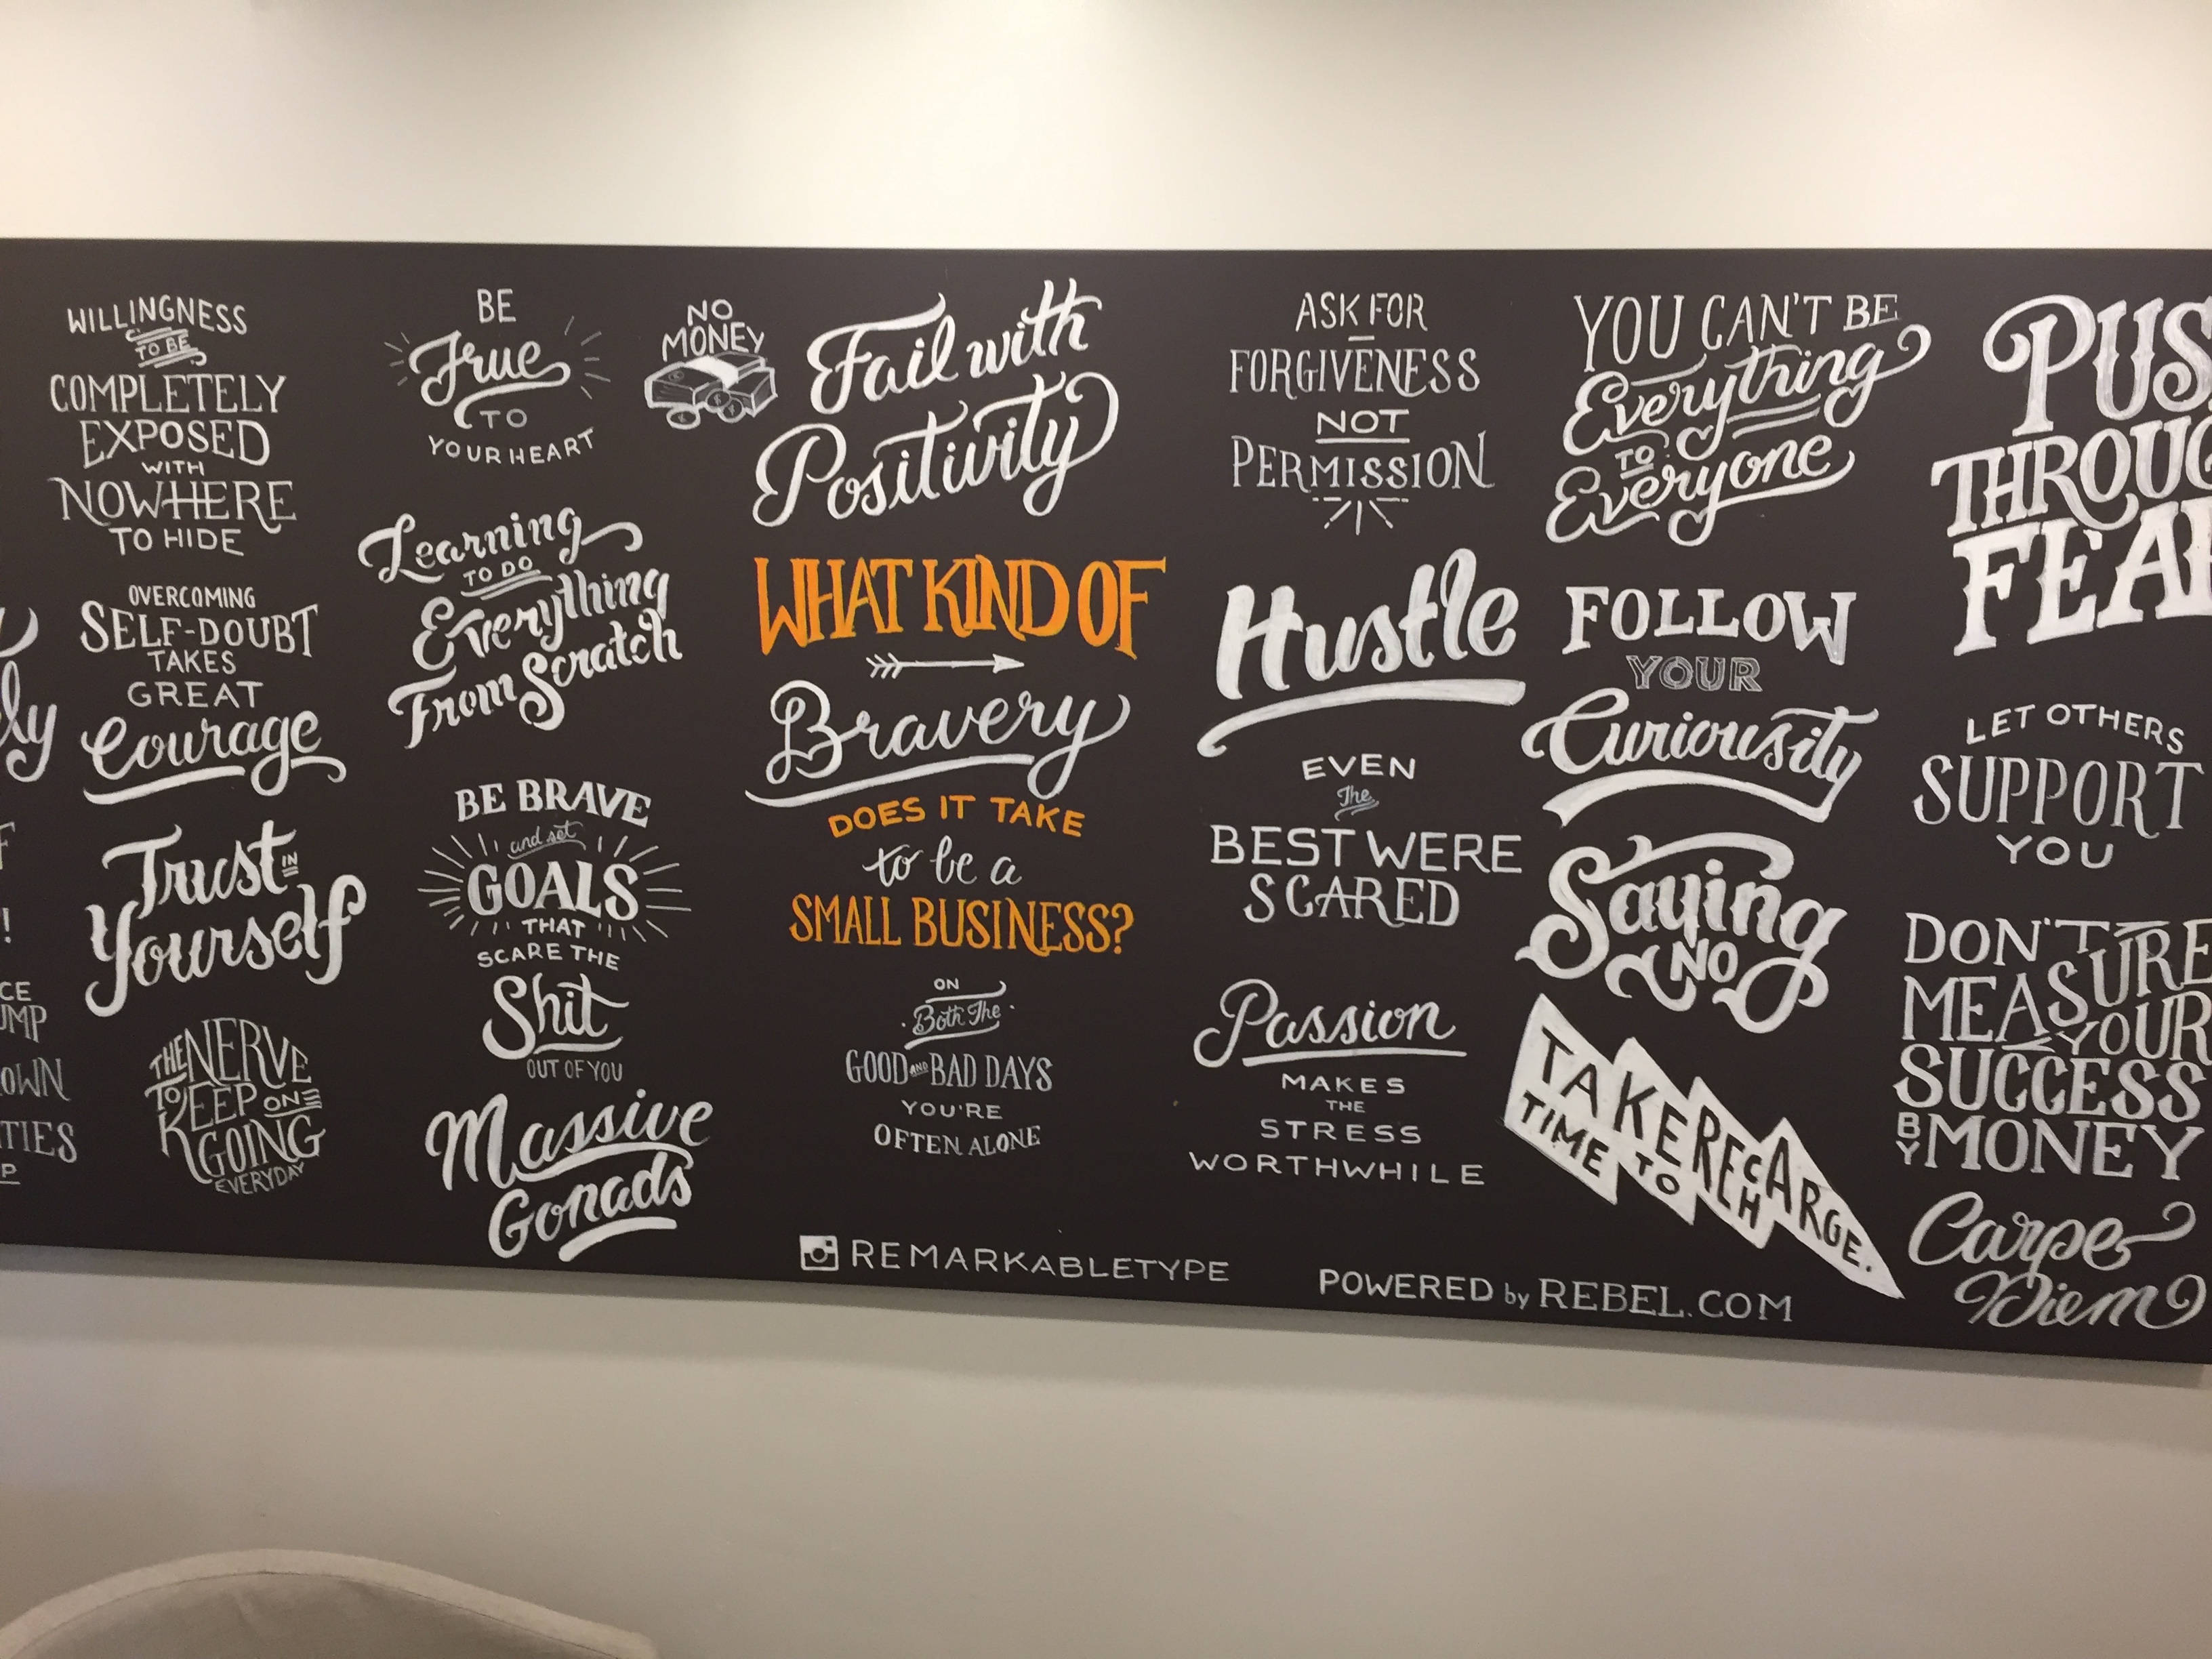 WILLINGNESS
TO BE
COMPLETELY
EXPOSED
WITH
NOWHERE
TO HIDE
OVERCOMING
SELF-DOUBT
TAKES
GREAT
Courage
Trust IN
Yourself
THE NERVE
TO KEEP ON
GOING
EVERYDAY
BE
True
TO
YOUR HEART
NO
MONEY
Learning
TO DO
Everything
From Scratch
BE BRAVE
and set
GOALS
THAT
SCARE THE
Shit
OUT OF YOU
Massive
Gonads
Fail with
Positivity
WHAT KIND OF
Bravery
DOES IT TAKE
to be a
SMALL BUSINESS?
ON
Both The
GOOD AND BAD DAYS
YOU'RE
OFTEN ALONE
REMARKABLETYPE
ASK FOR
FORGIVENESS
NOT
PERMISSION
Hustle
EVEN
The
BEST WERE
SCARED
Passion
MAKES
THE
STRESS
WORTHWHILE
POWERED by REBEL.COM
YOU CAN'T BE
Everything
TO
Everyone
FOLLOW
YOUR
Curiousity
Saying
NO
TAKE
TIME TO
RECHARGE.
PUS
THROUG
FEA
LET OTHERS
SUPPORT
YOU
DON'T
MEASURE
YOUR
SUCCESS
BY MONEY
Carpe
Diem